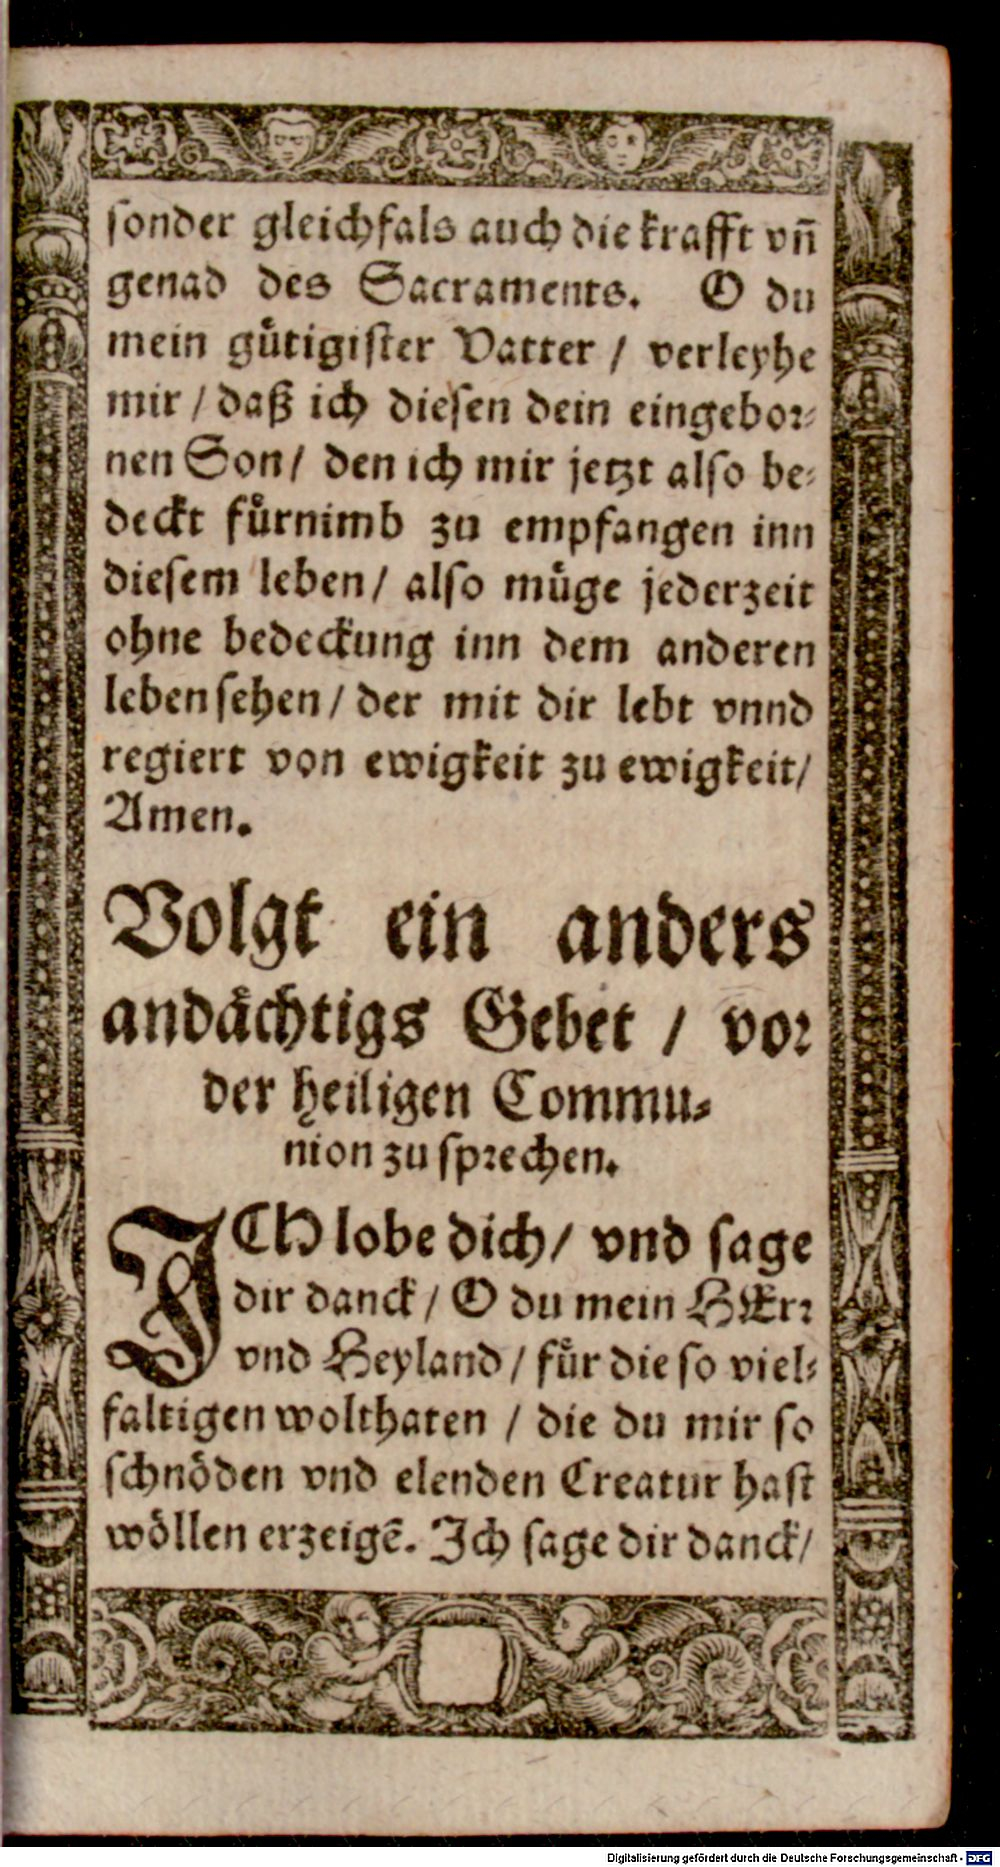 sonder gleichfals auch die krafft vn̄
genad des Sacraments. O du
mein gůtigister Vatter / verleyhe
mir / daß ich diesen dein eingebor-
nen Son / den ich mir jetzt also be-
deckt fůrnimb zu empfangen inn
diesem leben / also můge jederzeit
ohne bedeckung inn dem anderen
leben sehen / der mit dir lebt vnnd
regiert von ewigkeit zu ewigkeit /
Amen.
Volgt ein anders
andåchtigs Gebet / vor
der heiligen Commu-
nion zu sprechen.
ICH lobe dich / vnd sage
dir danck / O du mein HErr
vnd Heyland / fůr die so viel-
faltigen wolthaten / die du mir so
schnöden vnd elenden Creatur hast
wöllen erzeigē. Ich sage dir danck /
Digitalisierung gefördert durch die Deutsche Forschungsgemeinschaft - DFG